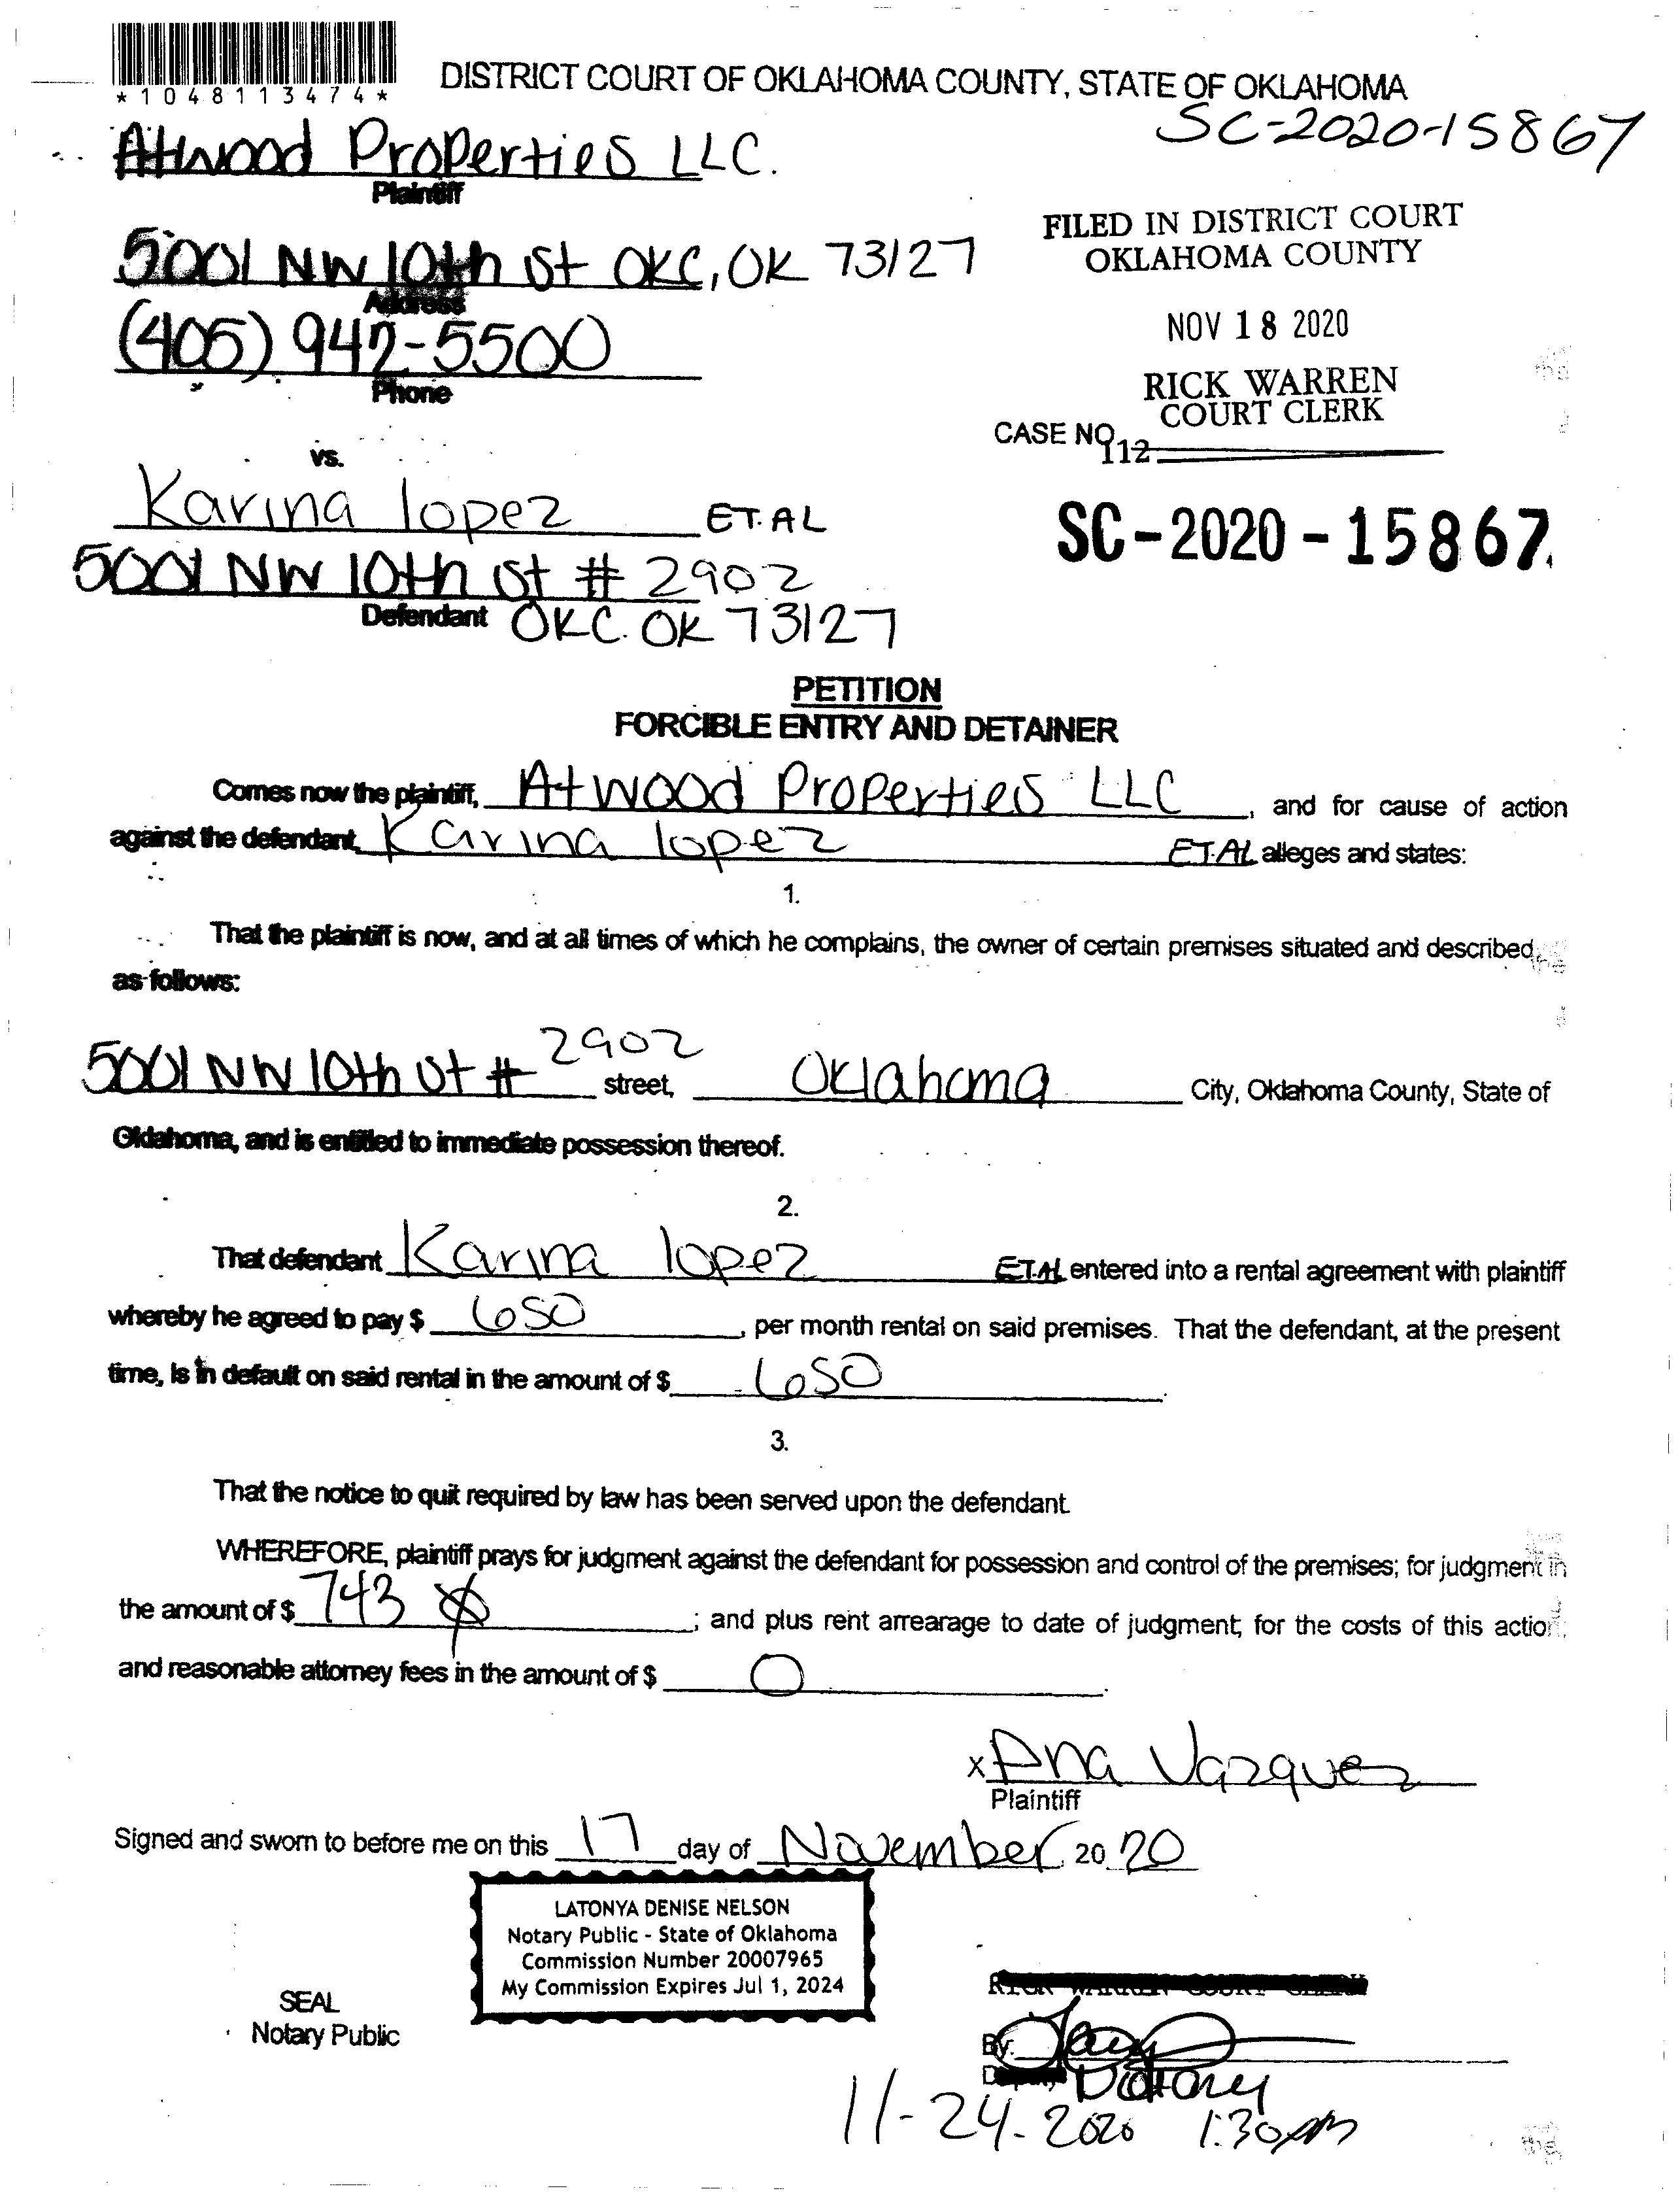 *1048113474*
DISTRICT COURT OF OKLAHOMA COUNTY, STATE OF OKLAHOMA
SC-2020-15867
Atwood Properties LLC.
Plaintiff
5001 NW 10th St OKC, OK 73127
Address
(405) 942-5500
Phone
FILED IN DISTRICT COURT
OKLAHOMA COUNTY
NOV 18 2020
RICK WARREN
COURT CLERK
CASE NO.
112
vs.
Karina lopez ET.AL
5001 NW 10th St # 2902
Defendant OKC. OK 73127
SC-2020-15867
PETITION
FORCIBLE ENTRY AND DETAINER
Comes now the plaintiff, Atwood Properties LLC, and for cause of action
against the defendant, Karina lopez ET.AL alleges and states:
1.
That the plaintiff is now, and at all times of which he complains, the owner of certain premises situated and described,
as follows:
5001 NW 10th St # 2902 street, Oklahoma City, Oklahoma County, State of
Oklahoma, and is entitled to immediate possession thereof.
2.
That defendant Karina lopez ET.AL entered into a rental agreement with plaintiff
whereby he agreed to pay $ 650, per month rental on said premises. That the defendant, at the present
time, Is in default on said rental in the amount of $ 650.
3.
That the notice to quit required by law has been served upon the defendant.
WHEREFORE, plaintiff prays for judgment against the defendant for possession and control of the premises; for judgment in
the amount of $ 743; and plus rent arrearage to date of judgment; for the costs of this action;
and reasonable attorney fees in the amount of $ 0.
x Ana Vazquez
Plaintiff
Signed and sworn to before me on this 17 day of November, 2020
LATONYA DENISE NELSON
Notary Public - State of Oklahoma
Commission Number 20007965
My Commission Expires Jul 1, 2024
SEAL
Notary Public
RICK WARREN COURT CLERK
By:
Notary
11-24-2020 1:30pm